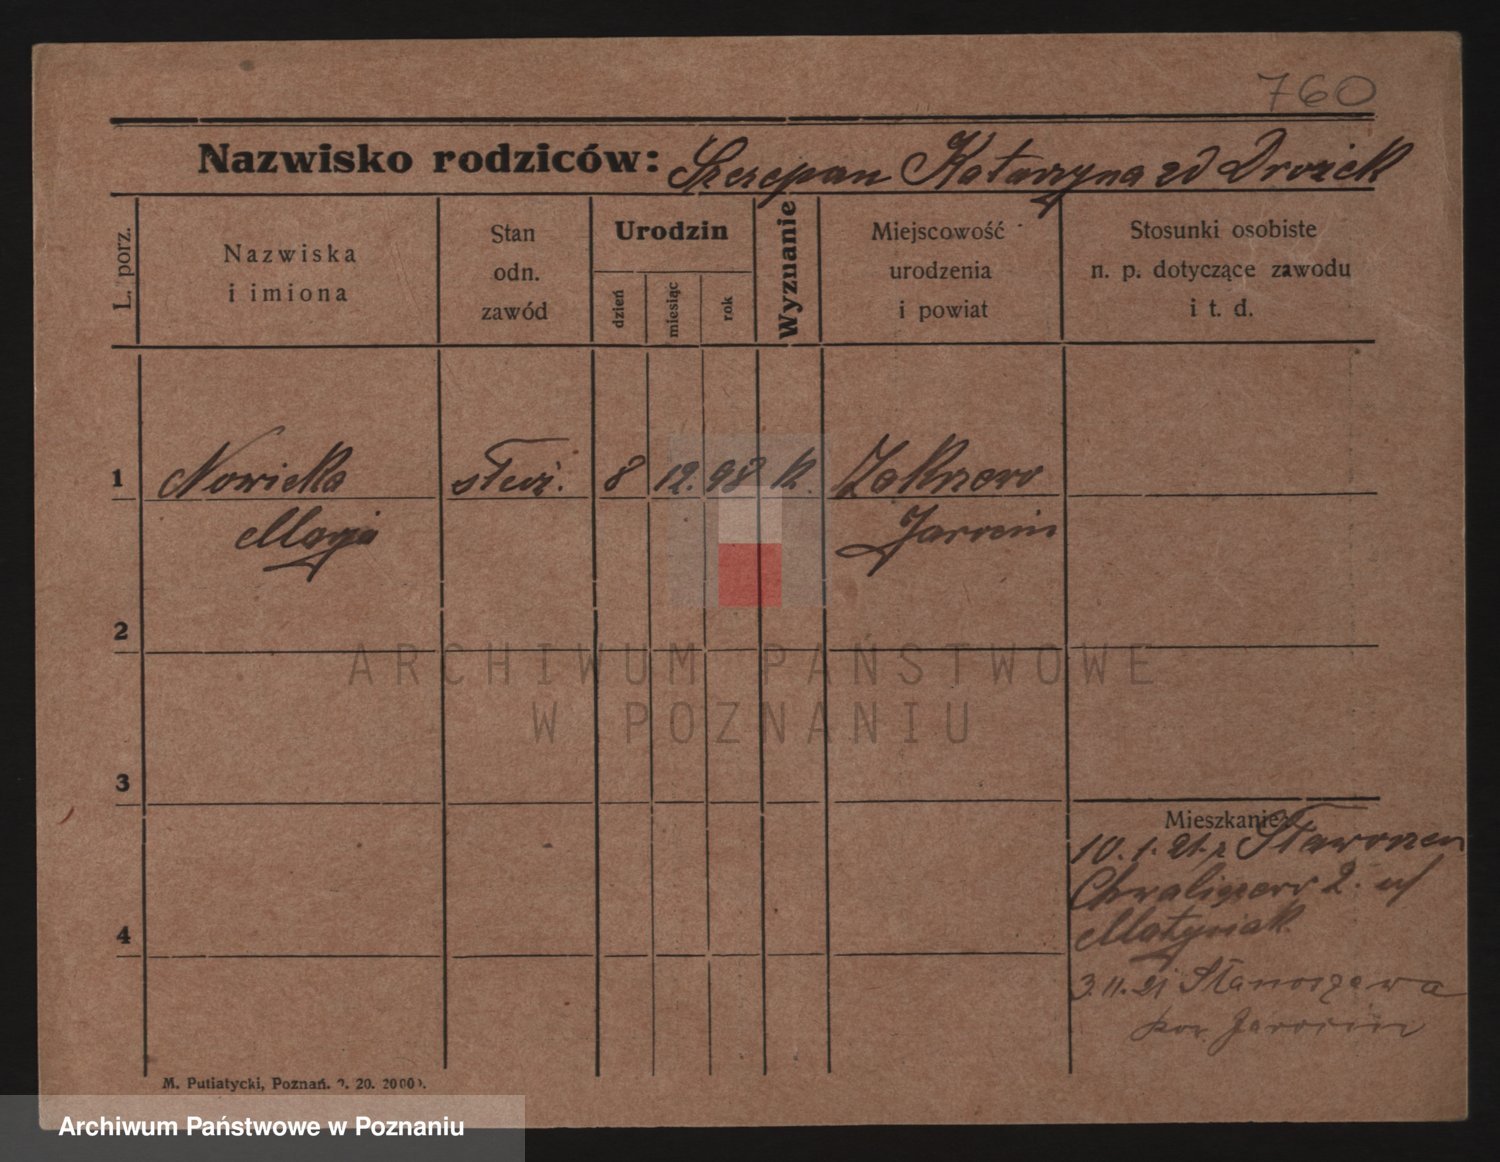 760
Nazwisko rodziców: Szczepan Katarzyna zd Drozick
L. porz.
Nazwiska
i imiona
Stan
odn.
zawód
Urodzin
dzień
miesiąc
rok
Wyznanie
Miejscowość
urodzenia
i powiat
Stosunki osobiste
n. p. dotyczące zawodu
i t. d.
1 Nowicka służ. 8 12. 98 k.
Marja Jarocin
2
3
4
Mieszkanie:
10. 1. 21. z
2. u/
Matysiak
3.11.21
pow. Jarocin
M. Putiatycki, Poznań. 20. 2000
ARCHIWUM PAŃSTWOWE
W POZNANIU
Archiwum Państwowe w Poznaniu